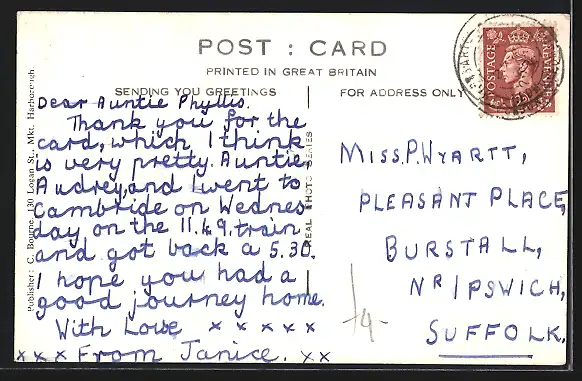 POST : CARD
PRINTED IN GREAT BRITAIN
SENDING YOU GREETINGS
FOR ADDRESS ONLY
Dear Auntie Phyllis.
Thank you for the
card, which I think
is very pretty. Auntie
Audrey, and I went to
Cambride on Wednes-
day on the 11.49. train
and got back a 5.30.
I hope you had a
good journey home.
With Love x x x x x
x x x From Janice. x x
MISS. P. WYARTT,
PLEASANT PLACE,
BURSTALL,
NR IPSWICH,
SUFFOLK.
Publisher: C. Bourne, 130 Logan St., Mkt. Harborough
REAL PHOTO SERIES
POSTAGE
REVENUE